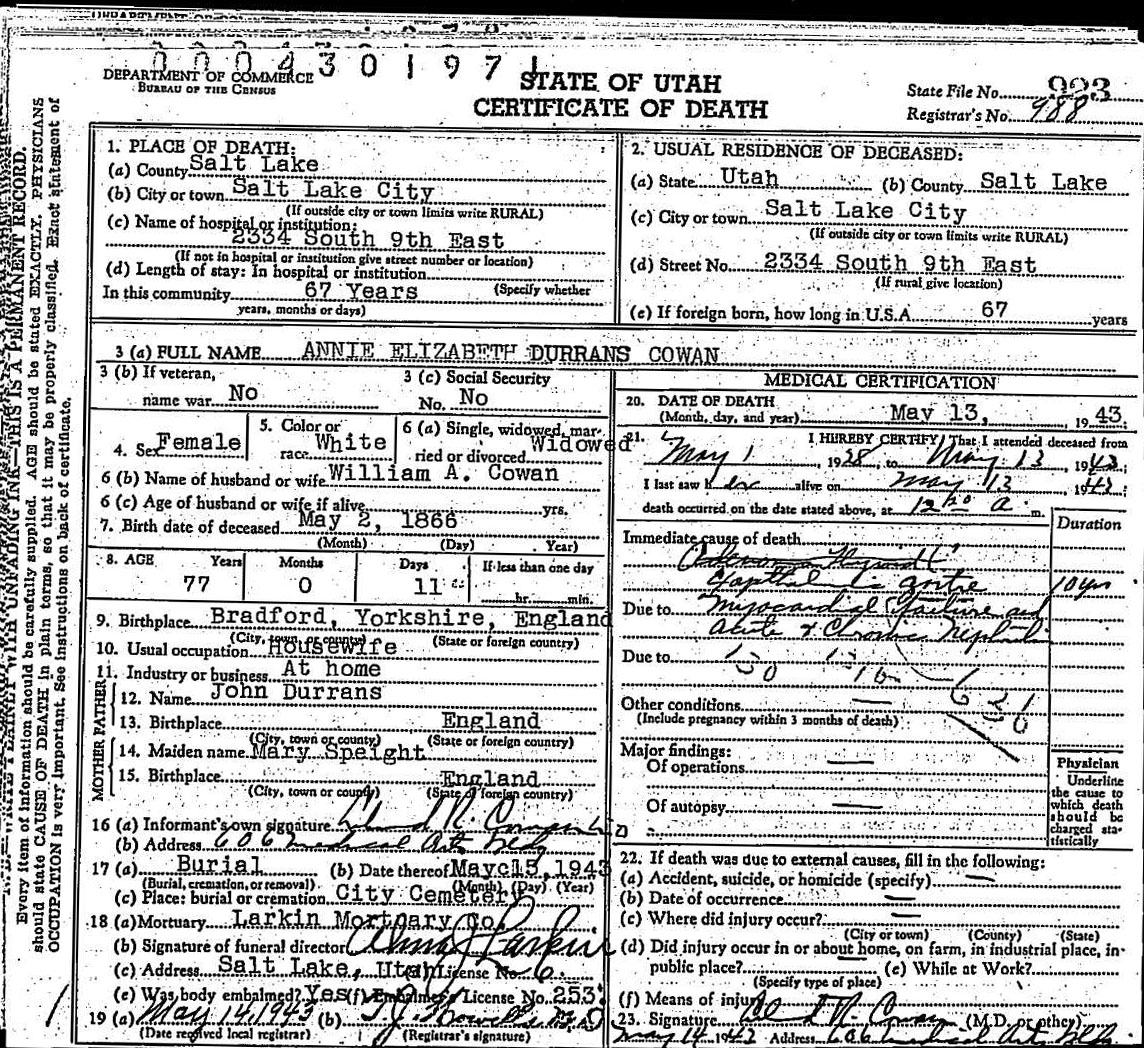 0004301971
DEPARTMENT OF COMMERCE
BUREAU OF THE CENSUS
STATE OF UTAH
CERTIFICATE OF DEATH
State File No. 923
Registrar's No. 988
Every item of information should be carefully supplied. AGE should be stated EXACTLY. PHYSICIANS
should state CAUSE OF DEATH in plain terms, so that it may be properly classified. Exact statement of
OCCUPATION is very important. See instructions on back of certificate.
1. PLACE OF DEATH:
(a) County Salt Lake
(b) City or town Salt Lake City
(If outside city or town limits write RURAL)
(c) Name of hospital or institution:
2334 South 9th East
(If not in hospital or institution give street number or location)
(d) Length of stay: In hospital or institution
In this community 67 Years (Specify whether
years, months or days)
2. USUAL RESIDENCE OF DECEASED:
(a) State Utah (b) County Salt Lake
(c) City or town Salt Lake City
(If outside city or town limits write RURAL)
(d) Street No. 2334 South 9th East
(If rural give location)
(e) If foreign born, how long in U.S.A. 67 years
3 (a) FULL NAME ANNIE ELIZABETH DURRANS COWAN
3 (b) If veteran,
name war No
3 (c) Social Security
No. No
4. Sex Female
5. Color or
race White
6 (a) Single, widowed, mar-
ried or divorced Widowed
6 (b) Name of husband or wife William A. Cowan
6 (c) Age of husband or wife if alive yrs.
7. Birth date of deceased May 2, 1866
(Month) (Day) Year)
8. AGE Years Months Days If less than one day
77 0 11 hr. min.
9. Birthplace Bradford, Yorkshire, England
(City, town, or county) (State or foreign country)
10. Usual occupation Housewife
11. Industry or business At home
FATHER
12. Name John Durrans
13. Birthplace England
(City, town or county) (State or foreign country)
MOTHER
14. Maiden name Mary Speight
15. Birthplace England
(City, town or county) (State or foreign country)
16 (a) Informant's own signature
(b) Address 606 Medical Arts Bldg
17 (a) Burial (b) Date thereof May 15, 1943
(Burial, cremation, or removal) (Month) (Day) (Year)
(c) Place: burial or cremation City Cemetery
18 (a) Mortuary Larkin Mortuary Co.
(b) Signature of funeral director Alma J Larkin
(c) Address Salt Lake, Utah License No. 6.
(e) Was body embalmed? Yes (f) Embalmer's License No. 253
19 (a) May 14, 1943 (b)
(Date received local registrar) (Registrar's signature)
MEDICAL CERTIFICATION
20. DATE OF DEATH
(Month, day, and year) May 13, 1943
21. I HEREBY CERTIFY, That I attended deceased from
May 1 1938, to May 13 1943
I last saw her alive on May 13 1943
death occurred on the date stated above, at 12 A m.
Duration
Immediate cause of death
goitre 10 yrs
Due to Myocardial failure and
Acute & Chronic Nephritis
Due to
Other conditions —
(Include pregnancy within 3 months of death)
Major findings:
Of operations —
Of autopsy —
Physician
Underline
the cause to
which death
should be
charged sta-
tistically
22. If death was due to external causes, fill in the following:
(a) Accident, suicide, or homicide (specify) —
(b) Date of occurrence —
(c) Where did injury occur? —
(City or town) (County) (State)
(d) Did injury occur in or about home, on farm, in industrial place, in
public place? (e) While at Work?
(Specify type of place)
(f) Means of injury
23. Signature (M.D. or other)
May 14 1943 Address 606 Medical Arts Bldg